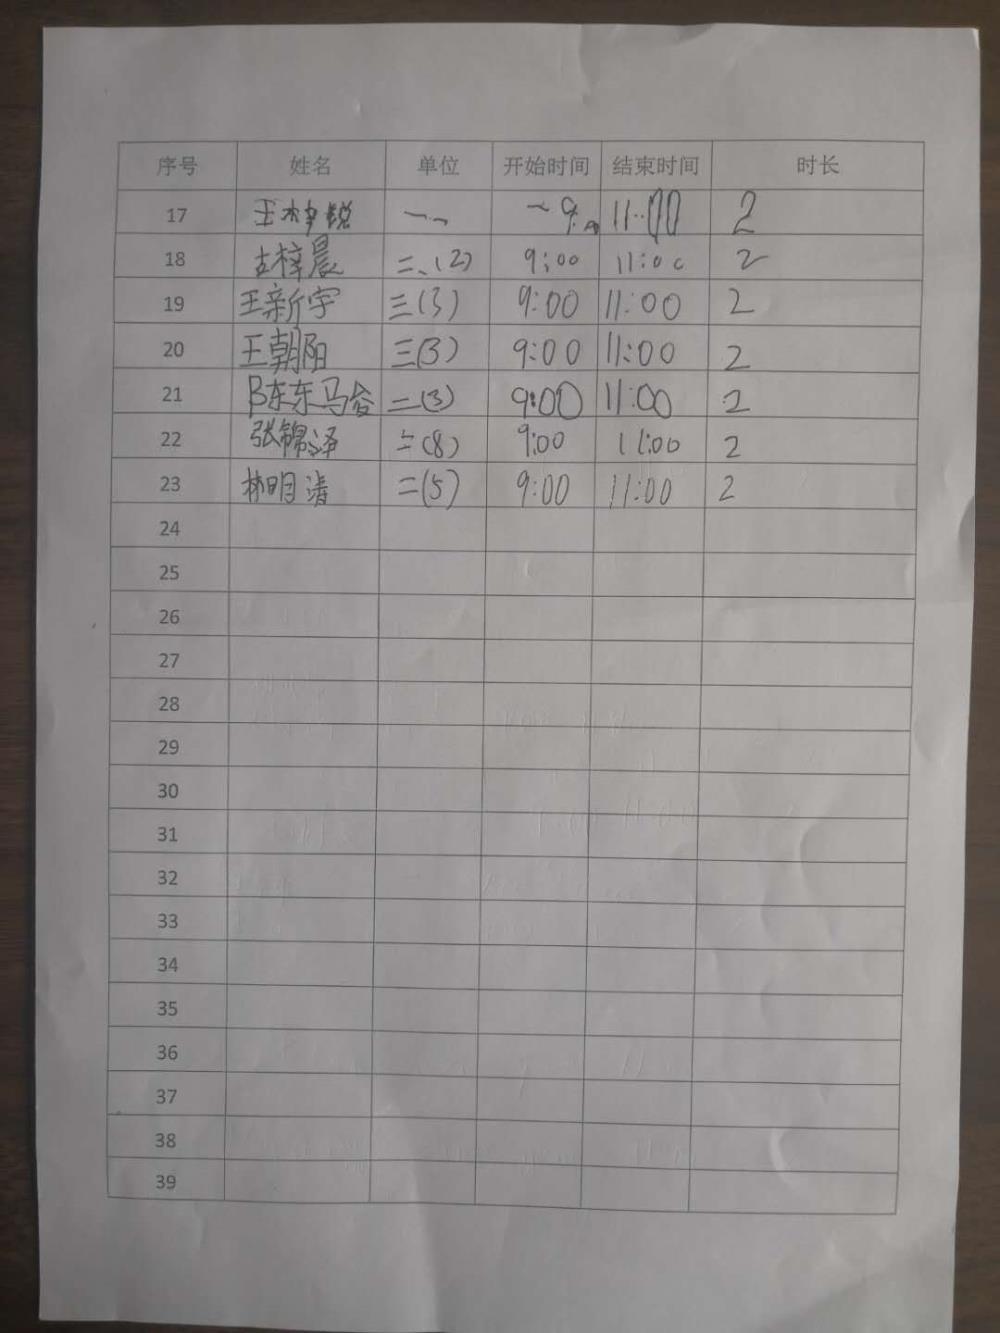 序号 姓名 单位 开始时间 结束时间 时长
17 王 锐 11:00 2
18 古梓晨 二、(2) 9:00 11:00 2
19 王新宇 三(3) 9:00 11:00 2
20 王朝阳 三(3) 9:00 11:00 2
21 陈东马睿 二(3) 9:00 11:00 2
22 张锦泽 二(8) 9:00 11:00 2
23 林明清 二(5) 9:00 11:00 2
24
25
26
27
28
29
30
31
32
33
34
35
36
37
38
39